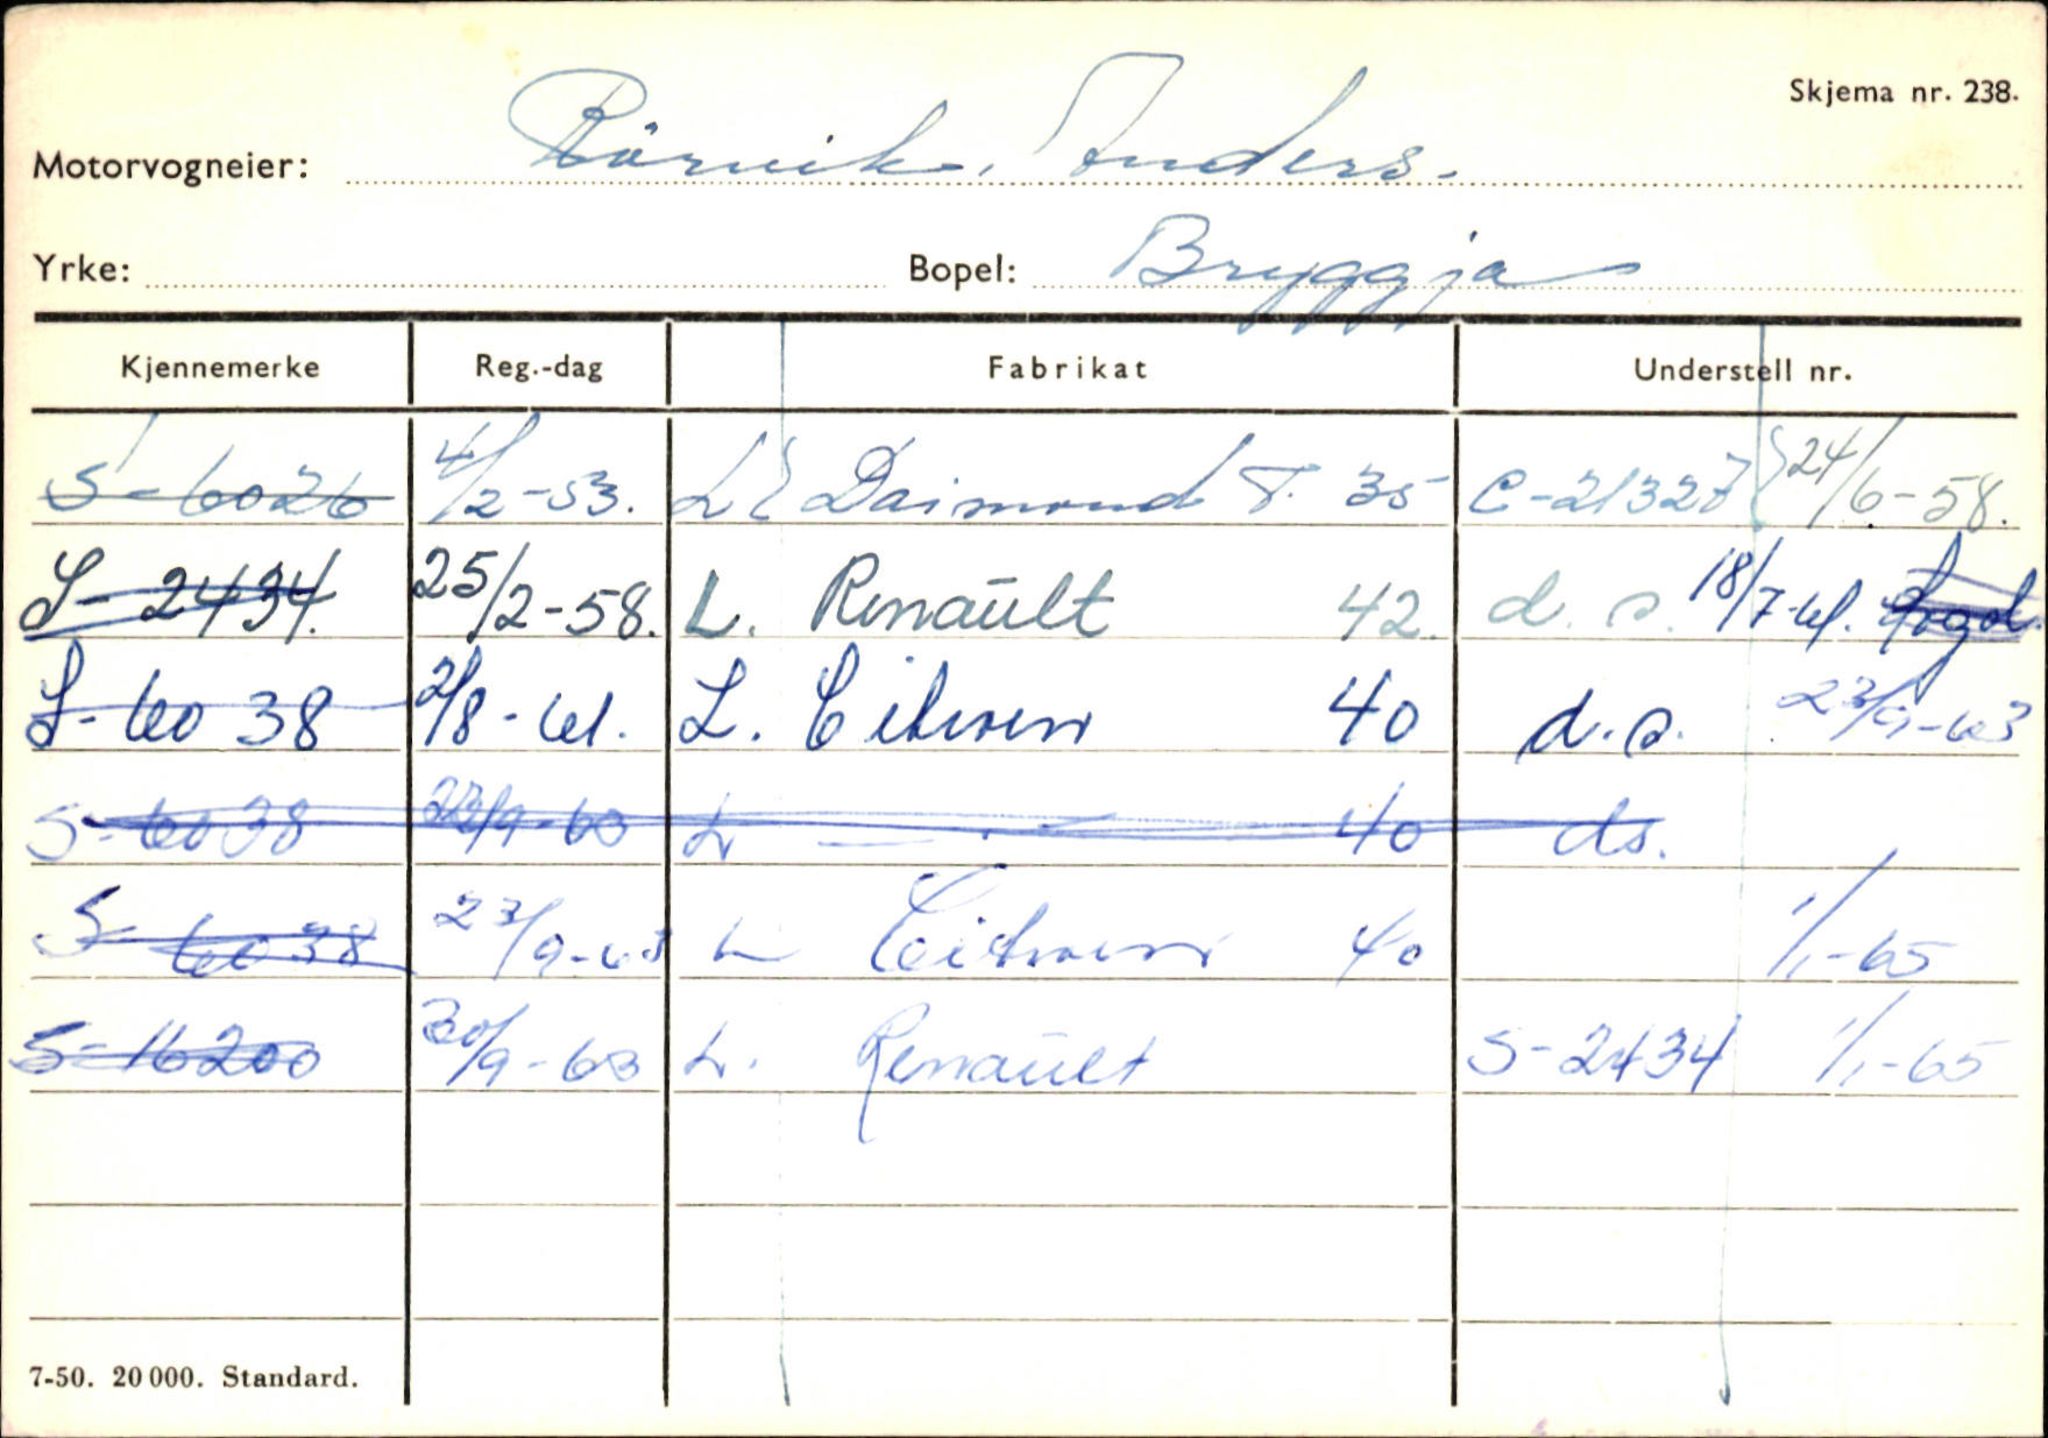 Skjema nr. 238.
Motorvogneier: Rörvik, Anders.
Yrke: Bopel: Bryggja
Kjennemerke Reg.-dag Fabrikat Understell nr.
S-6026 4/2-53. L Daimond T. 35 C-21327 24/6-58.
S-2434. 25/2-58. L. Renault 42. d. s. 18/7-61. Solgt.
S-6038 2/8-61. L. Citroen 40 d.s. 23/9-63
S-6038 23/9-63 L — 40 ds.
S-6038 23/9-63 L Citroen 40 1/1-65
S-16200 30/9-63 L. Renault S-2434 1/1-65
7-50. 20 000. Standard.